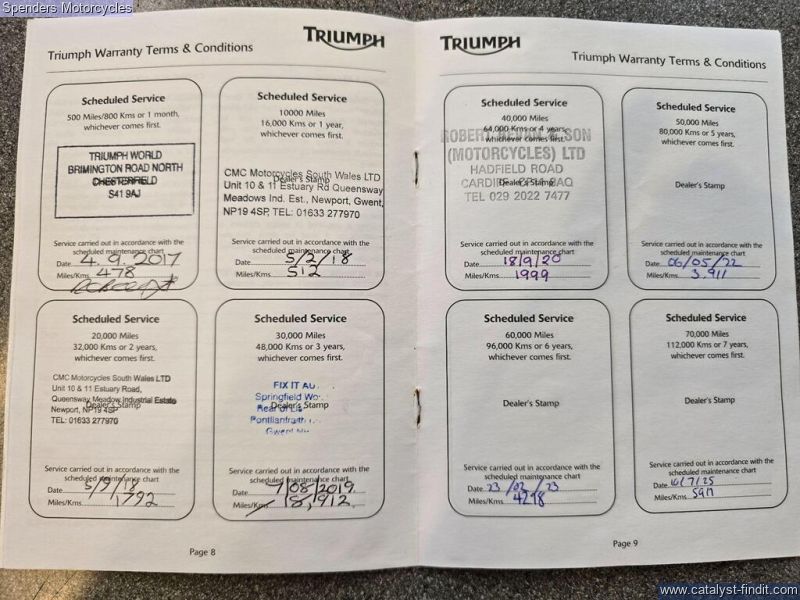 Spenders Motorcycles
TRIUMPH
Triumph Warranty Terms & Conditions
Scheduled Service
500 Miles/800 Kms or 1 month,
whichever comes first.
TRIUMPH WORLD
BRIMINGTON ROAD NORTH
CHESTERFIELD
S41 9AJ
Service carried out in accordance with the
scheduled maintenance chart
Date 4.9.2017
Miles/Kms 478
Scheduled Service
10000 Miles
16,000 Kms or 1 year,
whichever comes first.
CMC Motorcycles South Wales LTD
Dealer's Stamp
Unit 10 & 11 Estuary Rd Queensway
Meadows Ind. Est., Newport, Gwent,
NP19 4SP, TEL: 01633 277970
Service carried out in accordance with the
scheduled maintenance chart
Date 5/2/18
Miles/Kms 512
Scheduled Service
20,000 Miles
32,000 Kms or 2 years,
whichever comes first.
CMC Motorcycles South Wales LTD
Unit 10 & 11 Estuary Road,
Queensway Meadow Industrial Estate
Dealer's Stamp
Newport, NP19 4SP
TEL: 01633 277970
Service carried out in accordance with the
scheduled maintenance chart
Date 5/9/18
Miles/Kms 1,792
Scheduled Service
30,000 Miles
48,000 Kms or 3 years,
whichever comes first.
FIX IT AU
Springfield
Rear of
Dealer's Stamp
Gwent
Service carried out in accordance with the
scheduled maintenance chart
Date 7/08/2019
Miles/Kms 18,912
Page 8
TRIUMPH
Triumph Warranty Terms & Conditions
Scheduled Service
40,000 Miles
64,000 Kms or 4 years,
whichever comes first.
ROBERT & SON
(MOTORCYCLES) LTD
HADFIELD ROAD
CARDIFF
Dealer's Stamp
TEL 029 2022 7477
Service carried out in accordance with the
scheduled maintenance chart
Date 18/9/20
Miles/Kms 1999
Scheduled Service
50,000 Miles
80,000 Kms or 5 years,
whichever comes first.
Dealer's Stamp
Service carried out in accordance with the
scheduled maintenance chart
Date 06/05/22
Miles/Kms 3,911
Scheduled Service
60,000 Miles
96,000 Kms or 6 years,
whichever comes first.
Dealer's Stamp
Service carried out in accordance with the
scheduled maintenance chart
Date 23/02/23
Miles/Kms 4218
Scheduled Service
70,000 Miles
112,000 Kms or 7 years,
whichever comes first.
Dealer's Stamp
Service carried out in accordance with the
scheduled maintenance chart
Date 10/7/25
Miles/Kms
Page 9
www.catalyst-findit.com